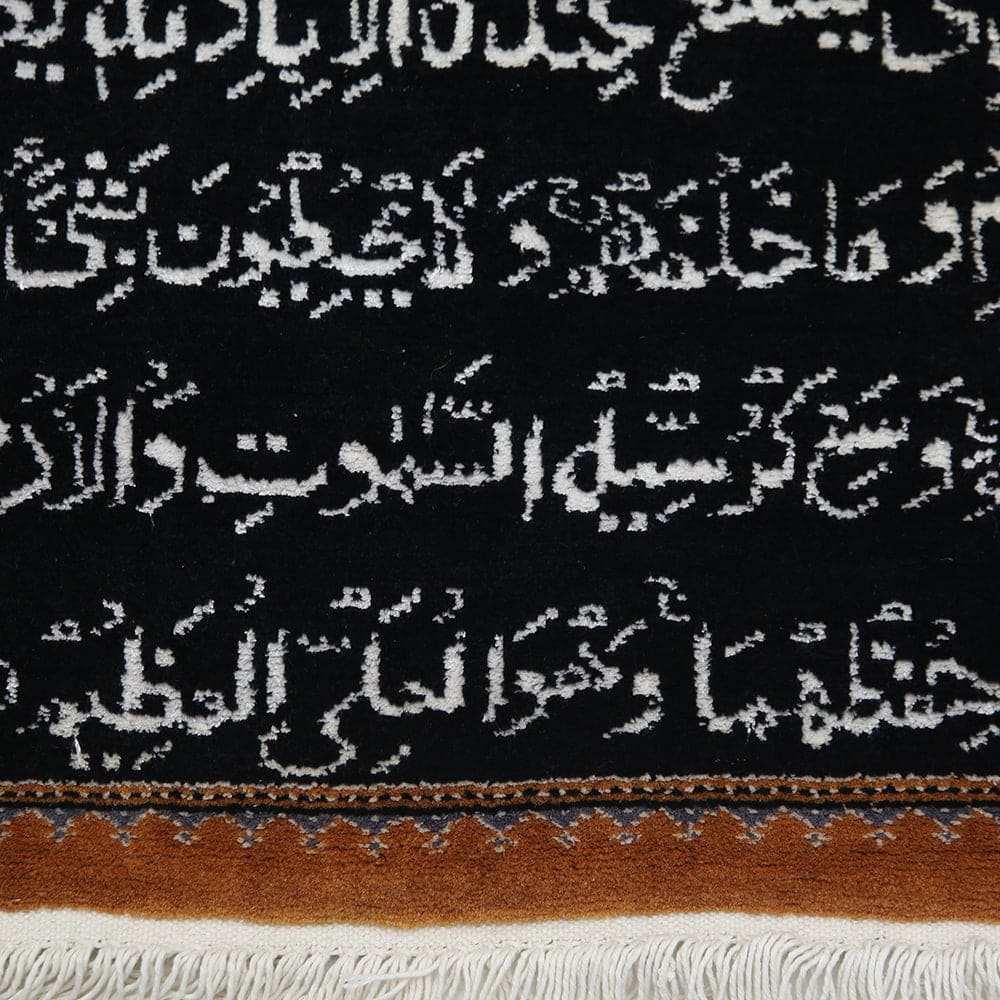 يشفع عنده إلا بإذنه
وَمَا خَلْفَهُمْ وَلَا يُحِيطُونَ بِشَيْ
وَسِعَ كُرْسِيُّهُ السَّمٰوٰتِ وَالْاَرْ
حِفْظُهُمَا وَهُوَ الْعَلِيُّ الْعَظِيمُ